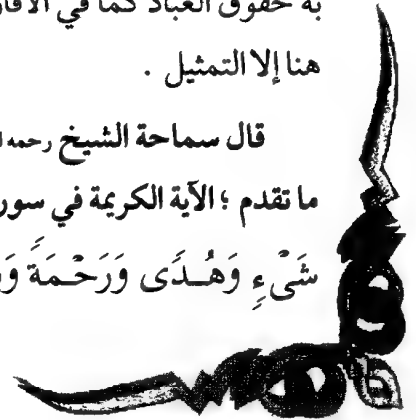 به حقوق العباد كما في
هنا إلا التمثيل .
قال سماحة الشيخ رحمه
ما تقدم ؛ الآية الكريمة في
شَيْءٍ وَهُدًى وَرَحْمَةً